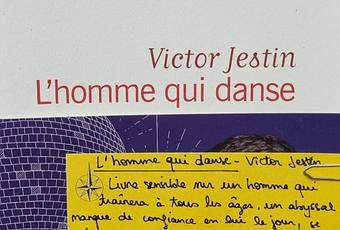 Victor Jestin
L'homme qui danse
L'homme qui danse - Victor Jestin
Livre sensible sur un homme qui
traînera à tous les âges, un abyssal
manque de confiance en lui le jour, se